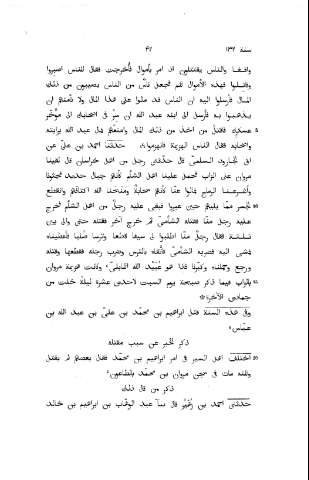 سنة ١٣٢ ٤٢
واقفا والناس يقتتلون ان امر بأموال فأخرجت فقال للناس اصبروا
وقاتلوا فهذه الأموال لكم فجعل ناس من الناس يصيبون من ذلك
المال فأرسلوا اليه ان الناس قد مالوا على هذا المال ولا نأمنهم ان
يذهبوا به فأرسل الى ابنه عبد الله ان سر فى اصحابك الى مؤخّر
5 عسكرك فاقتل من اخذ من ذلك المال وامنعهم فمال عبد الله برايته
واصحابه فقال الناس الهزيمة فانهزموا، حدّثنا احمد بن علىّ عن
ابى الجارود السلمىّ قال حدّثنى رجل من اهل خراسان قال لقينا
مروان على الزاب فحمل علينا اهل الشأم كأنّهم جبال حديد فجثونا
واشرعنا الرماح فمالوا عنّا كأنّهم سحابة ومنحنا الله اكتافهم وانقطع
10 الجسر ممّا يليهم حين عبروا فبقى عليه رجل من اهل الشأم فخرج
عليه رجل منّا فقتله الشأمىّ ثم خرج آخر فقتله حتى والى بين
ثلاثة فقال رجل منّا اطلبوا لى سيفا قاطعا وترسا صلبا فأعطيناه
فمشى اليه فضربه الشأمىّ فاتّقاه بالترس وضرب رجله فقطعها وقتله
ورجع وحملناه وكبّرنا فاذا هو عبيد الله الكابلىّ، وكانت هزيمة مروان
15 بالزاب فيما ذكر صبيحة يوم السبت لاحدى عشرة ليلة خلت من
جمادى الآخرة
وفى هذه السنة قتل ابراهيم بن محمد بن علىّ بن عبد الله بن
عباس،
ذكر الخبر عن سبب مقتله
20 اختلف اهل السير فى امر ابراهيم بن محمد فقال بعضهم لم يقتل
ولكنه مات فى سجن مروان بن محمد بالطاعون،
ذكر من قال ذلك
حدّثنى احمد بن زهير قال سا عبد الوهّاب بن ابراهيم بن خالد